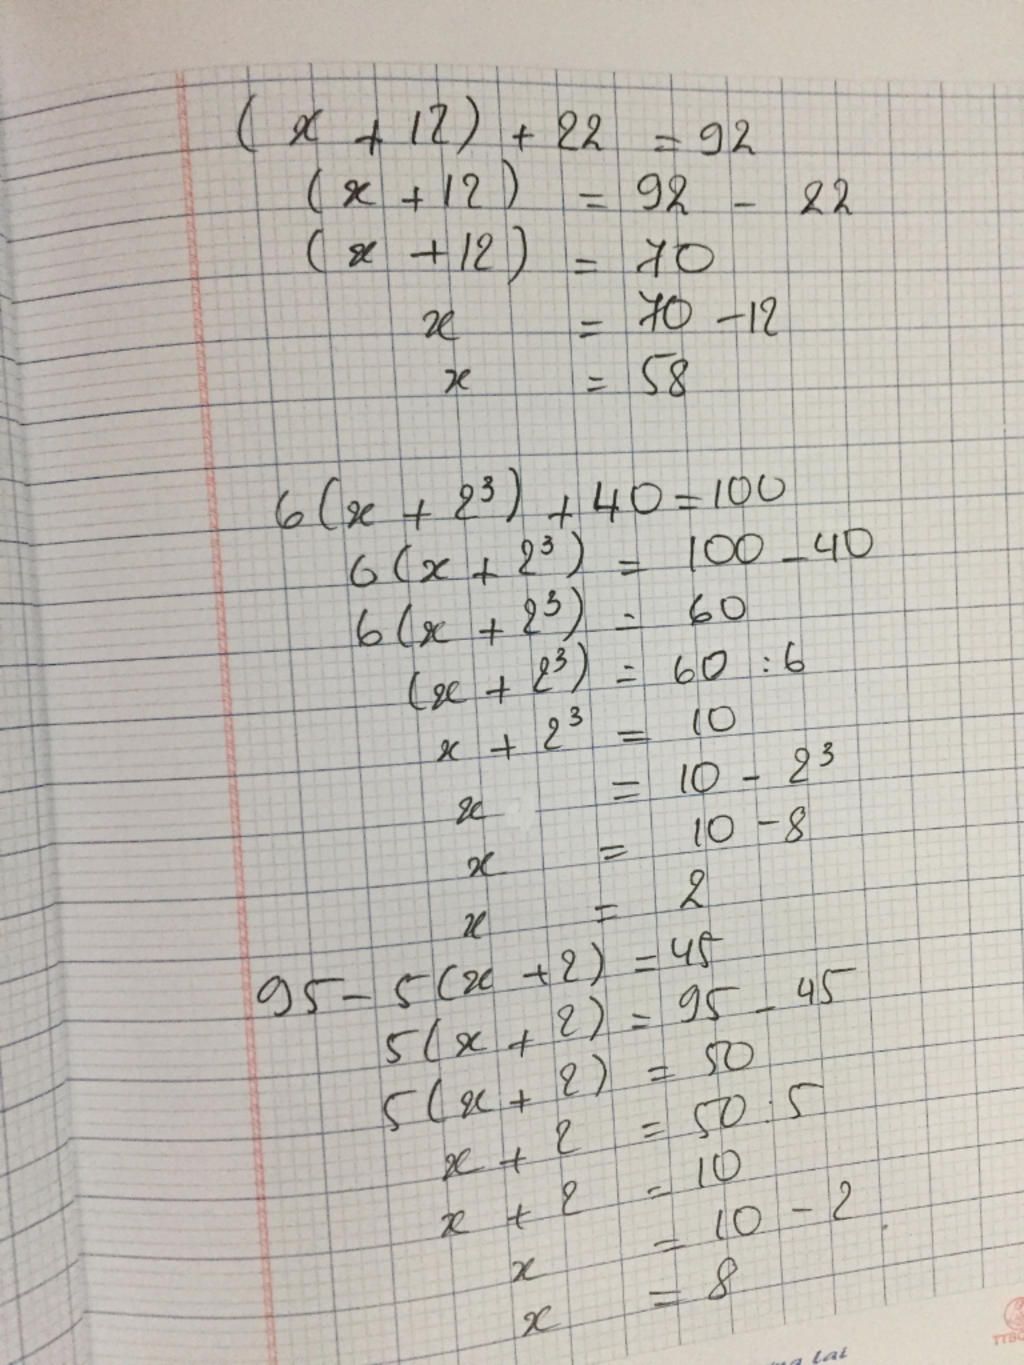 (x + 12) + 22 = 92
(x + 12) = 92 - 22
(x + 12) = 70
x = 70 - 12
x = 58
6(x + 2³) + 40 = 100
6(x + 2³) = 100 - 40
6(x + 2³) = 60
(x + 2³) = 60 : 6
x + 2³ = 10
x = 10 - 2³
x = 10 - 8
x = 2
95 - 5(x + 2) = 45
5(x + 2) = 95 - 45
5(x + 2) = 50
x + 2 = 50 : 5
x + 2 = 10
x = 10 - 2
x = 8
lai